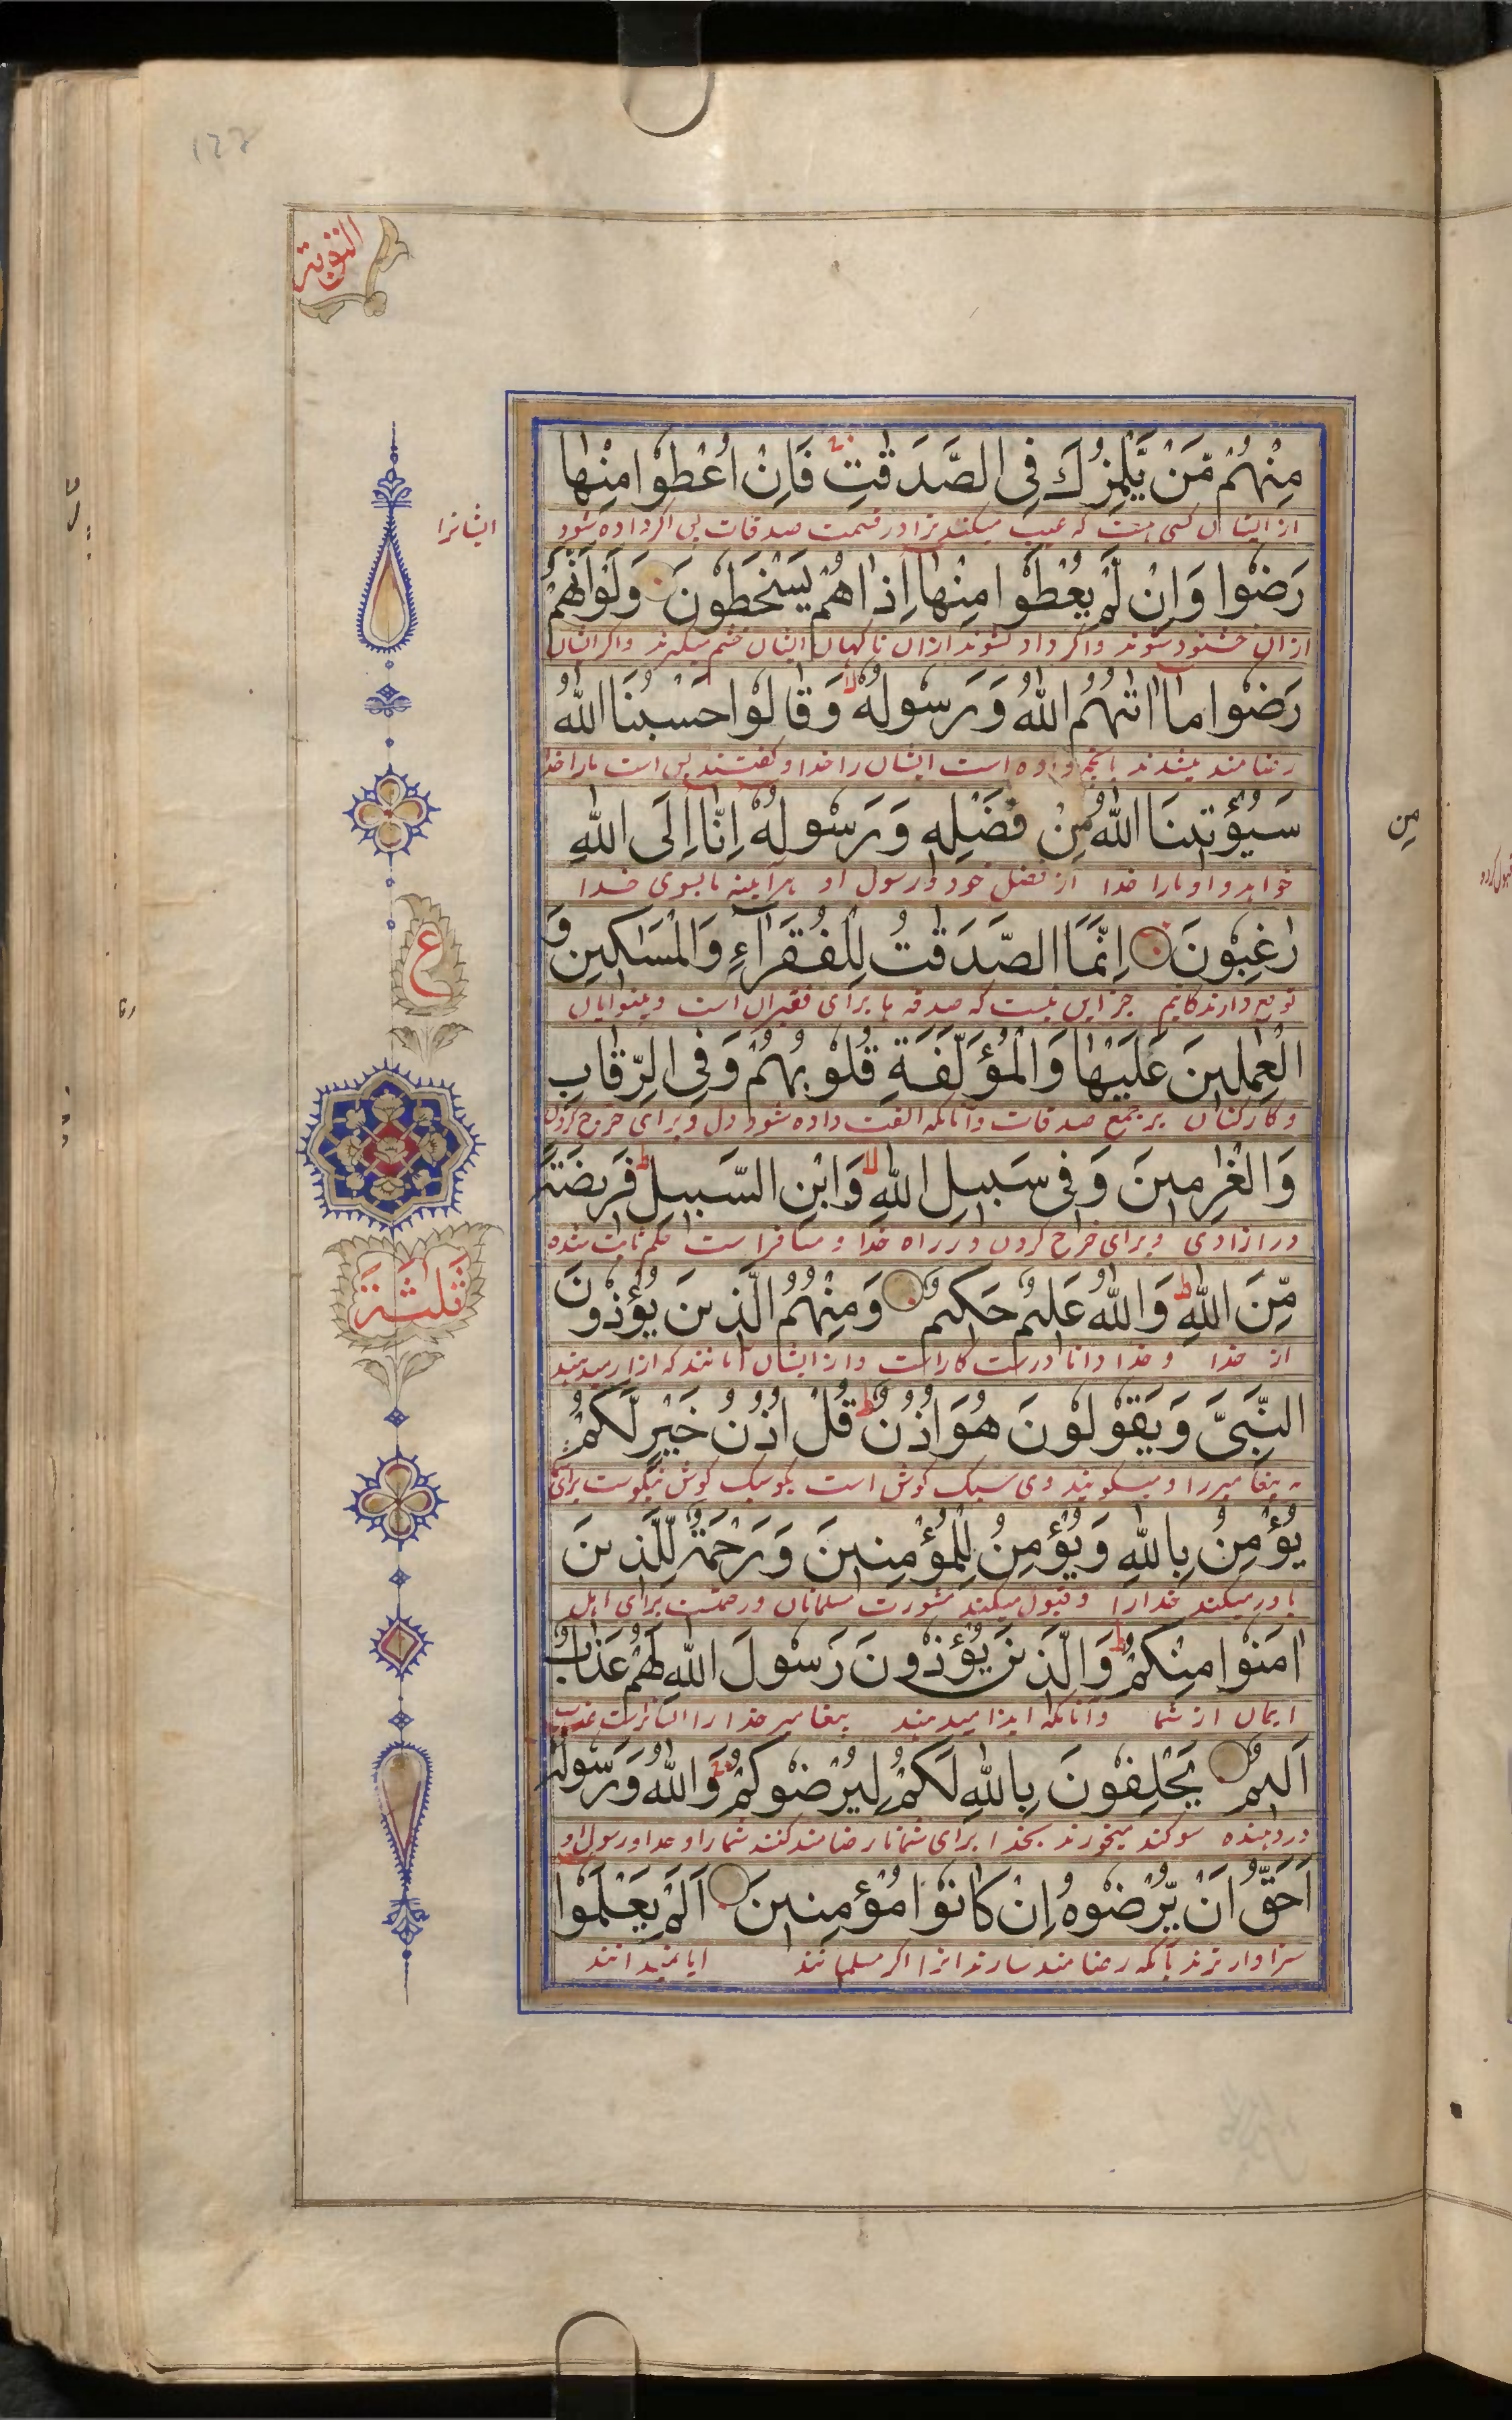 التوبة
مِنْهُمْ مَّنْ يَّلْمِزُكَ فِى الصَّدَقٰتِ فَاِنْ اُعْطُوْا مِنْهَا
از ایشان کسی هست که عیب میکند ترا در قسمت صدقات پس اگر داده شود
ایشانرا
رَضُوْا وَاِنْ لَّمْ يُعْطَوْا مِنْهَا اِذَا هُمْ يَسْخَطُوْنَ وَلَوْ اَنَّهُمْ
ازان خشنود شوند و اگر داده نشوند ازان ناگهان ایشان خشم میگیرند و اگر ایشان
رَضُوْا مَا اٰتٰىهُمُ اللّٰهُ وَرَسُوْلُهٗ وَقَالُوْا حَسْبُنَا اللّٰهُ
رضامند میشدند بآنچه داده است ایشان را خدا و گفتند بس است مارا خدا
سَيُؤْتِيْنَا اللّٰهُ مِنْ فَضْلِهٖ وَرَسُوْلُهٗ اِنَّا اِلَى اللّٰهِ
من
خواهد داد مارا خدا از فضل خود و رسول او هر آیینه ما بسوی خدا
رٰغِبُوْنَ اِنَّمَا الصَّدَقٰتُ لِلْفُقَرَآءِ وَالْمَسٰكِيْنِ وَ
توقع دارندگانیم جز این نیست که صدقه ها برای فقیران است و بینوایان
ع
الْعٰمِلِيْنَ عَلَيْهَا وَالْمُؤَلَّفَةِ قُلُوْبُهُمْ وَفِى الرِّقَابِ
و کارکنان بر جمع صدقات و آنانکه الفت داده شود دل و برای خرج کردن
وَالْغٰرِمِيْنَ وَفِى سَبِيْلِ اللّٰهِ وَابْنِ السَّبِيْلِ فَرِيْضَةً
در آزادی و برای خرج کردن در راه خدا و مسافر است حکم ثابت شده
ثلثة
مِّنَ اللّٰهِ وَاللّٰهُ عَلِيْمٌ حَكِيْمٌ وَمِنْهُمُ الَّذِيْنَ يُؤْذُوْنَ
از خدا و خدا دانا درست کار است و از ایشان آنانند که آزار میدهند
النَّبِىَّ وَيَقُوْلُوْنَ هُوَ اُذُنٌ قُلْ اُذُنُ خَيْرٍ لَّكُمْ
پیغامبر را و میگویند وی سبک گوش است بگو سبک گوش نیکوست برای
يُؤْمِنُ بِاللّٰهِ وَيُؤْمِنُ لِلْمُؤْمِنِيْنَ وَرَحْمَةٌ لِّلَّذِيْنَ
باور میکند خدا را و قبول میکند مشورت مسلمانان و رحمتست برای اهل
اٰمَنُوْا مِنْكُمْ وَالَّذِيْنَ يُؤْذُوْنَ رَسُوْلَ اللّٰهِ لَهُمْ عَذَابٌ
ایمان از شما و آنانکه ایذا میدهند پیغامبر خدا را ایشانراست عذاب
اَلِيْمٌ يَحْلِفُوْنَ بِاللّٰهِ لَكُمْ لِيُرْضُوْكُمْ وَاللّٰهُ وَرَسُوْلُهٗ
درد دهنده سوگند میخورند بخدا برای شما تا رضامند کنند شما را و خدا و رسول او
اَحَقُّ اَنْ يُّرْضُوْهُ اِنْ كَانُوْا مُؤْمِنِيْنَ اَلَمْ يَعْلَمُوْا
سزاوارترند بآنکه رضامند سازند انرا اگر مسلمانند ایا نمیدانند